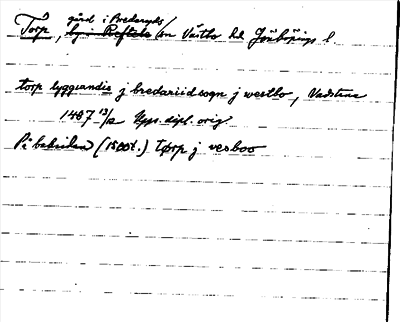 gård i Bredaryds
Torp, by i Reftele sn Västbo hd Jönköpings l.
torp lyggiandis j bredariid sogn j westbo, Vadstena
1487 13/12 Upps. dipl. orig.
På baksidan (1500t.) Tørp j vesboo